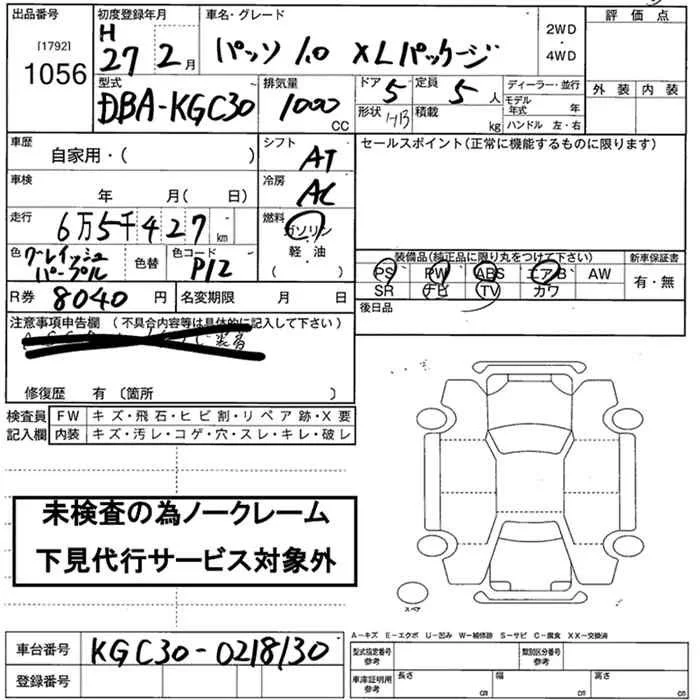 出品番号 初度登録年月 車名・グレード 評価点
[1792] 1056 H 27 2月 パッソ 1.0 XLパッケージ 2WD・4WD
型式 排気量 ドア 5 定員 5人 ディーラー・並行 外装 内装
DBA-KGC30 1000CC 形状 H/B 積載 kg モデル年式 年
ハンドル 左・右
車歴 シフト セールスポイント(正常に機能するものに限ります)
自家用・( ) AT
車検 冷房
年 月( 日) AC
走行 燃料
6万5千427km ガソリン
色 グレイッシュパープル 色替 色コード P12 軽・油
装備品(純正品に限り丸をつけて下さい) 新車保証書
PS PW ABS エアB AW 有・無
SR ナビ TV カワ
R券 8040円 名変期限 月 日
後日品
注意事項申告欄 (不具合内容等は具体的に記入して下さい)
修復歴 有 〔箇所 〕
検査員 FW キズ・飛石・ヒビ割・リペア跡・X要
記入欄 内装 キズ・汚レ・コゲ・穴・スレ・キレ・破レ
未検査の為ノークレーム
下見代行サービス対象外
スペア
A-キズ E-エクボ U-凹み W-補修跡 S-サビ C-腐食 XX-交換済
車台番号 KGC30-0218130
登録番号
型式指定番号 参考 類別区分番号 参考
車庫証明用 参考 長さ cm 幅 cm 高さ cm